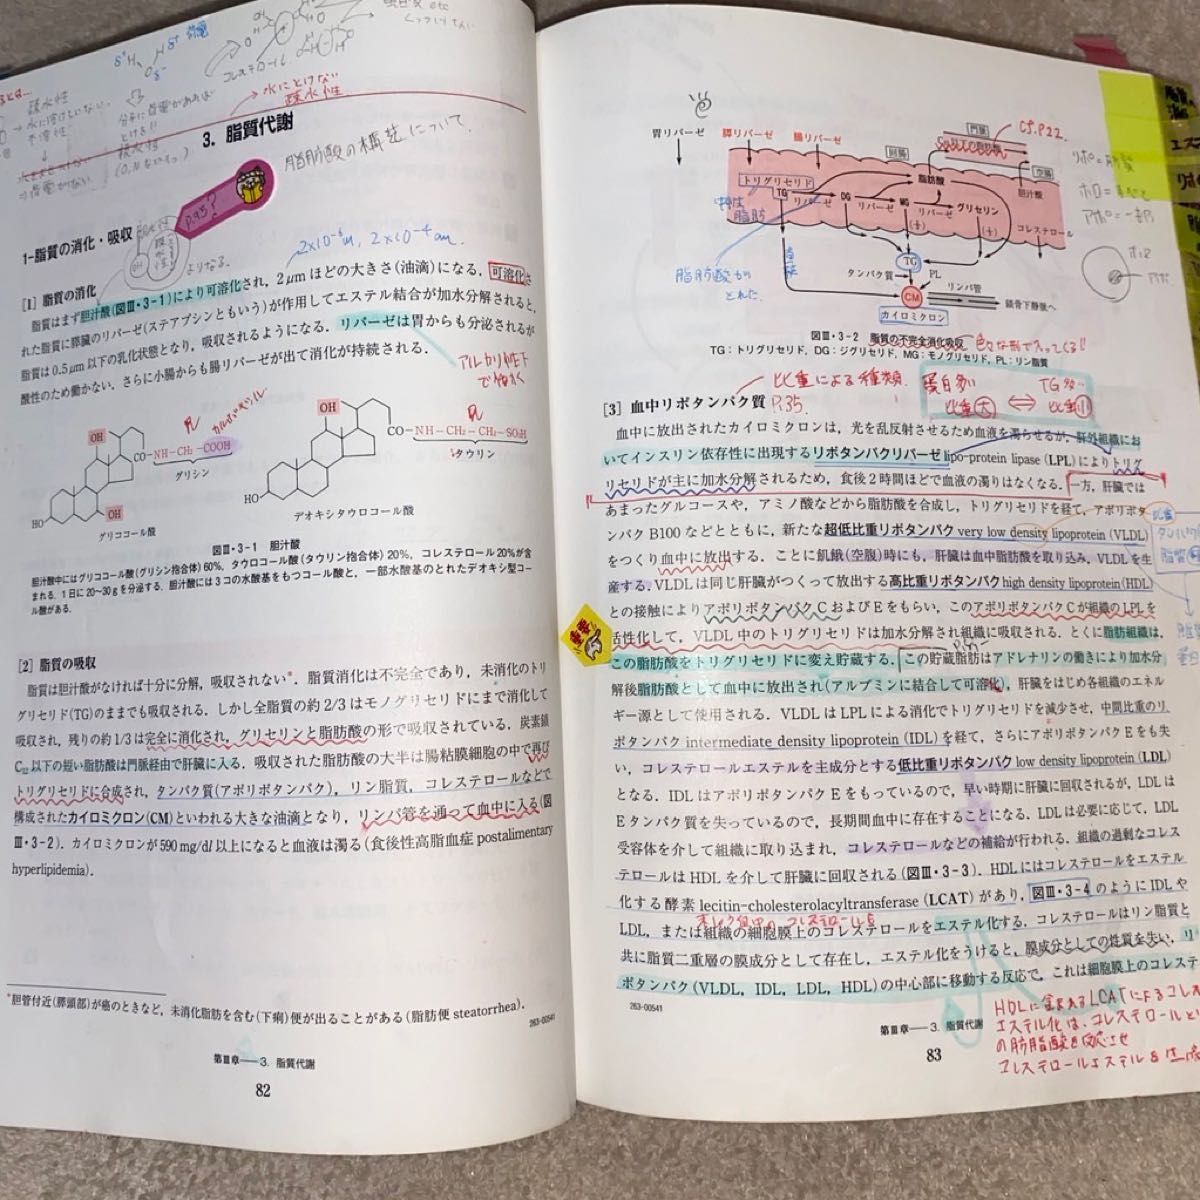 δ+
H
H
δ+
O
δ-
コレステロール
疎水性
→水に溶けていない.
不溶性
→水にとけない
疎水性
3. 脂質代謝
脂肪酸の構造について.
P.95?
1-脂質の消化・吸収
2×10⁻⁶m, 2×10⁻⁴cm.
よりなる.
[1] 脂質の消化
脂質はまず胆汁酸(図Ⅲ・3-1)により可溶化され，2μmほどの大きさ(油滴)になる．可溶化さ
れた脂質に膵臓のリパーゼ(ステアプシンともいう)が作用してエステル結合が加水分解されると，
脂質は0.5μm以下の乳化状態となり，吸収されるようになる．リパーゼは胃からも分泌されるが
酸性のため働かない．さらに小腸からも腸リパーゼが出て消化が持続される．
アルカリ性下
で働く
OH
CO-NH-CH₂-COOH
グリシン
HO
OH
グリココール酸
OH
CO-NH-CH₂-CH₂-SO₃H
タウリン
HO
デオキシタウロコール酸
図Ⅲ・3-1 胆汁酸
胆汁酸中にはグリココール酸(グリシン抱合体)60%，タウロコール酸(タウリン抱合体)20%，コレステロール20%が含
まれる．1日に20～30gを分泌する．胆汁酸には3コの水酸基をもつコール酸と，一部水酸基のとれたデオキシ型コー
ル酸がある．
[2] 脂質の吸収
脂質は胆汁酸がなければ十分に分解，吸収されない*．脂質消化は不完全であり，未消化のトリ
グリセリド(TG)のままでも吸収される．しかし全脂質の約2/3はモノグリセリドにまで消化して
吸収され，残りの約1/3は完全に消化され，グリセリンと脂肪酸の形で吸収されている．炭素鎖
C₁₂以下の短い脂肪酸は門脈経由で肝臓に入る．吸収された脂肪酸の大半は腸粘膜細胞の中で再び
トリグリセリドに合成され，タンパク質(アポリポタンパク)，リン脂質，コレステロールなどで
構成されたカイロミクロン(CM)といわれる大きな油滴となり，リンパ管を通って血中に入る(図
Ⅲ・3-2)．カイロミクロンが590mg/dl以上になると血液は濁る(食後性高脂血症 postalimentary
hyperlipidemia)．
*胆管付近(膵頭部)が癌のときなど，未消化脂肪を含む(下痢)便が出ることがある(脂肪便 steatorrhea)．
263-00541
第Ⅲ章──3. 脂質代謝
82
胃リパーゼ
膵リパーゼ
腸リパーゼ
回腸
門脈
cf.P22.
空腸
トリグリセリド
TG
リパーゼ
DG
リパーゼ
MG
リパーゼ
脂肪酸
グリセリン
胆汁酸
コレステロール
中性
脂肪
脂肪酸も
とれた.
直接
TG
タンパク質
PL
CM
リンパ管
鎖骨下静脈へ
カイロミクロン
リポ=脂質
アポ=一部
ホロ
アポ
図Ⅲ・3-2 脂質の不完全消化吸収
色々な形で入ってくる!!
TG：トリグリセリド，DG：ジグリセリド，MG：モノグリセリド，PL：リン脂質
比重による種類.
P.35.
蛋白多い
比重大
⇔
TG多い
比重小
[3] 血中リポタンパク質
血中に放出されたカイロミクロンは，光を乱反射させるため血液を濁らせるが，肝外組織にお
いてインスリン依存性に出現するリポタンパクリパーゼlipo-protein lipase (LPL)によりトリグ
リセリドが主に加水分解されるため，食後2時間ほどで血液の濁りはなくなる．一方，肝臓では
あまったグルコースや，アミノ酸などから脂肪酸を合成し，トリグリセリドを経て，アポリポタ
ンパクB100などとともに，新たな超低比重リポタンパク very low density lipoprotein (VLDL)
をつくり血中に放出する．ことに飢餓(空腹)時にも，肝臓は血中脂肪酸を取り込み，VLDLを生
産する．VLDLは同じ肝臓がつくって放出する高比重リポタンパク high density lipoprotein (HDL)
との接触によりアポリポタンパクCおよびEをもらい，このアポリポタンパクCが組織のLPLを
活性化して，VLDL中のトリグリセリドは加水分解され組織に吸収される．とくに脂肪組織は，
この脂肪酸をトリグリセリドに変え貯蔵する．この貯蔵脂肪はアドレナリンの働きにより加水分
解後脂肪酸として血中に放出され(アルブミンに結合して可溶化)，肝臓をはじめ各組織のエネル
ギー源として使用される．VLDLはLPLによる消化でトリグリセリドを減少させ，中間比重のリ
ポタンパク intermediate density lipoprotein (IDL)を経て，さらにアポリポタンパクEをも失
い，コレステロールエステルを主成分とする低比重リポタンパク low density lipoprotein (LDL)
となる．IDLはアポリポタンパクEをもっているので，早い時期に肝臓に回収されるが，LDLは
Eタンパク質を失っているので，長期間血中に存在することになる．LDLは必要に応じて，LDL
受容体を介して組織に取り込まれ，コレステロールなどの補給が行われる．組織の過剰なコレス
テロールはHDLを介して肝臓に回収される(図Ⅲ・3-3)．HDLにはコレステロールをエステル
化する酵素 lecitin-cholesterolacyltransferase (LCAT)があり，図Ⅲ・3-4のようにIDLや
LDL，または組織の細胞膜上のコレステロールをエステル化する．コレステロールはリン脂質と
共に脂質二重層の膜成分として存在し，エステル化をうけると，膜成分としての性質を失い，リ
ポタンパク(VLDL，IDL，LDL，HDL)の中心部に移動する反応で，これは細胞膜上のコレステ
重要
263-00541
第Ⅲ章──3. 脂質代謝
83
HDLに含まれるLCATによるコレス
エステル化は、コレステロールと
の脂肪酸を反応させ
コレステロールエステルを生成